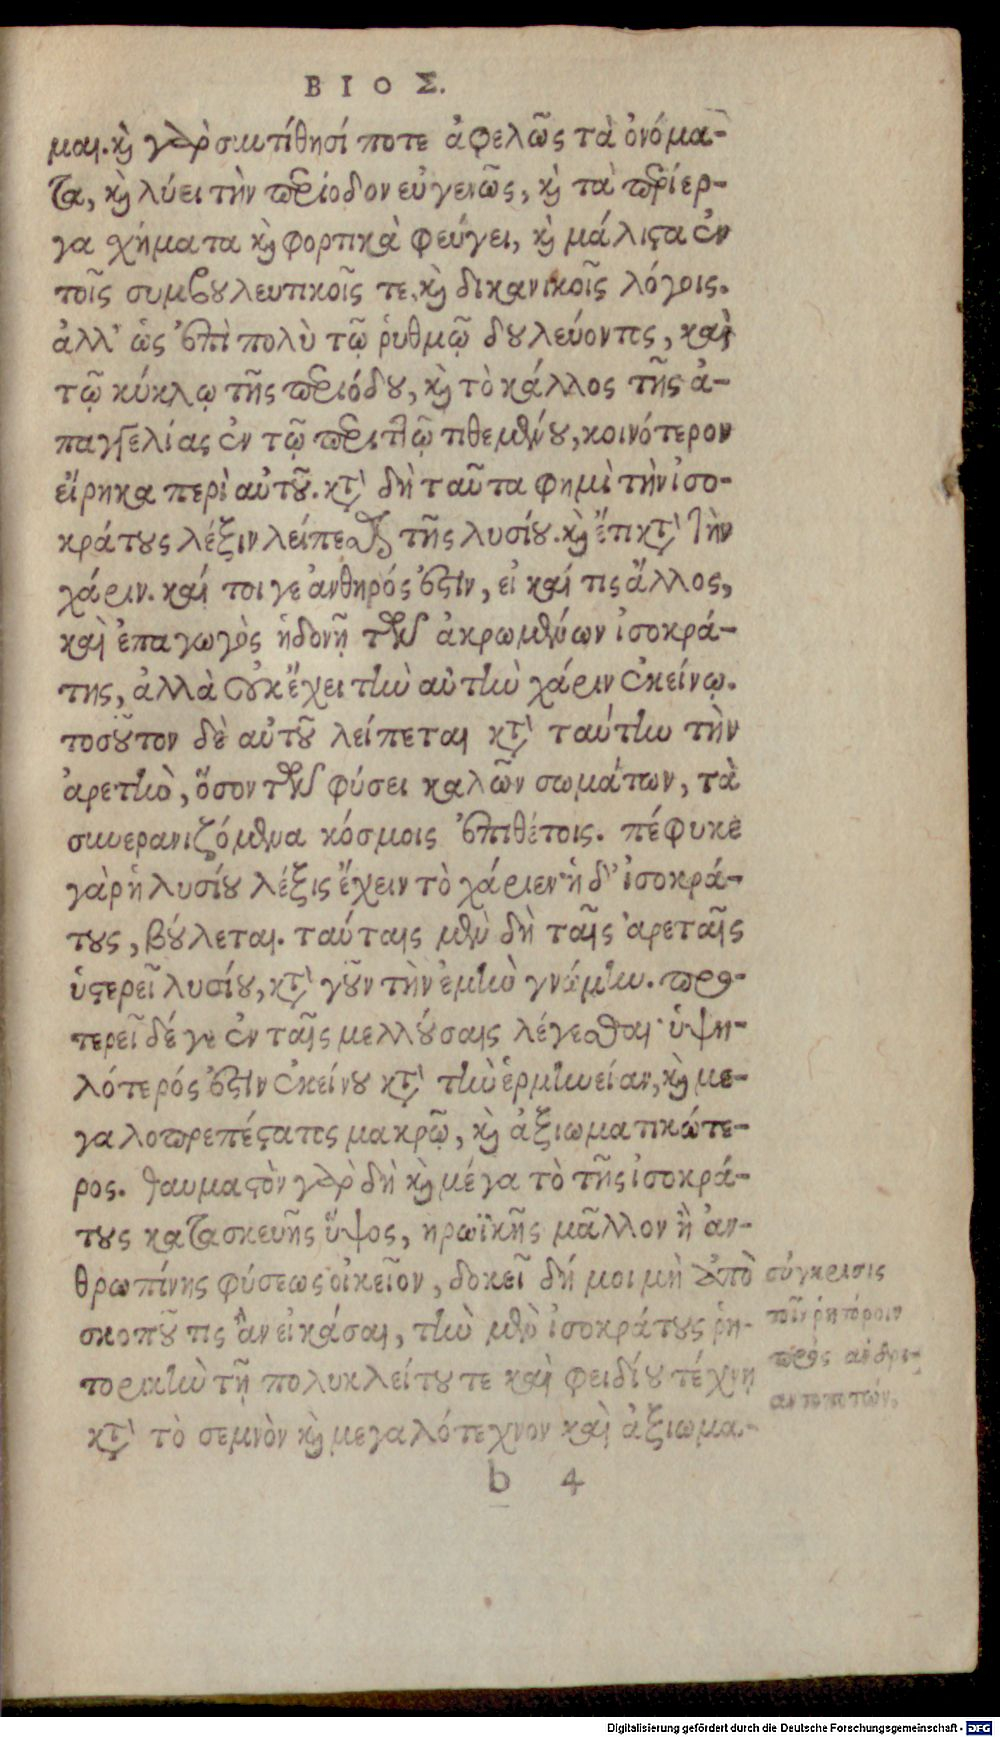 ΒΙΟΣ.
μαι. καὶ γὰρ συντίθησί ποτε ἀφελῶς τὰ ὀνόμα-
τα, καὶ λύει τὴν περίοδον εὐγενῶς, καὶ τὰ περίερ-
γα χήματα καὶ φορτικὰ φεύγει, καὶ μάλιστα ἐν
τοῖς συμβουλευτικοῖς τε, καὶ δικανικοῖς λόγοις.
ἀλλ' ὡς ἐπὶ πολὺ τῷ ῥυθμῷ δουλεύοντος, καὶ
τῷ κύκλῳ τῆς περιόδου, καὶ τὸ κάλλος τῆς ἀ-
παγγελίας ἐν τῷ περιττῷ τιθεμένου, κοινότερον
εἴρηκα περὶ αὐτοῦ. κατὰ δὴ ταῦτα φημὶ τὴν ἰσο-
κράτους λέξιν λείπεσθαι τῆς λυσίου. καὶ ἔτι κατὰ τὴν
χάριν. καί τοι γε ἀνθηρός ἐστιν, εἰ καί τις ἄλλος,
καὶ ἐπαγωγὸς ἡδονῇ τῶν ἀκρωμένων ἰσοκρά-
της, ἀλλὰ οὐκ ἔχει τὴν αὐτὴν χάριν ἐκείνῳ.
τοσοῦτον δὲ αὐτοῦ λείπεται κατὰ ταύτην τὴν
ἀρετὴν, ὅσον τῶν φύσει καλῶν σωμάτων, τὰ
συνερανιζόμενα κόσμοις ἐπιθέτοις. πέφυκε
γὰρ ἡ λυσίου λέξις ἔχειν τὸ χάριεν· ἡ δ' ἰσοκρά-
τους, βούλεται. ταύταις μὲν δὴ ταῖς ἀρεταῖς
ὑστερεῖ λυσίου, κατὰ γοῦν τὴν ἐμὴν γνώμην. προ-
τερεῖ δέ γε ἐν ταῖς μελλούσαις λέγεσθαι· ὑψη-
λότερός ἐστιν ἐκείνου κατὰ τὴν ἑρμηνείαν, καὶ με-
γαλοπρεπέστατος μακρῷ, καὶ ἀξιωματικώτε-
ρος. θαυμαστὸν γὰρ δὴ καὶ μέγα τὸ τῆς ἰσοκρά-
τους κατασκευῆς ὕψος, ἡρωϊκῆς μᾶλλον ἢ ἀν-
θρωπίνης φύσεως οἰκεῖον, δοκεῖ δή μοι μὴ ἀπὸ
σκοποῦ τις ἂν εἰκάσαι, τὴν μὲν ἰσοκράτους ῥη-
τορικὴν τῇ πολυκλείτου τε καὶ φειδίου τέχνῃ
κατὰ τὸ σεμνὸν καὶ μεγαλότεχνον καὶ ἀξιωμα-
σύγκρισις
τοῖν ῥητόροιν
πρὸς ἀνδρι-
αντοποιών.
b 4
Digitalisierung gefördert durch die Deutsche Forschungsgemeinschaft - DFG